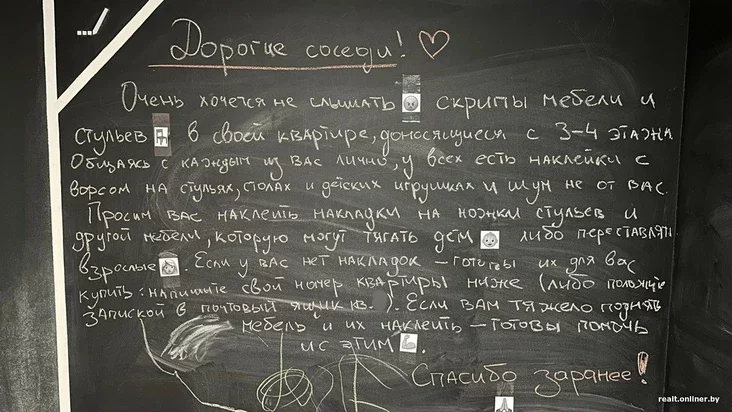 Дорогие соседи!
Очень хочется не слышать скрипы мебели и
стульев в своей квартире, доносящиеся с 3-4 этажа
Общаясь с каждым из вас лично, у всех есть наклейки с
ворсом на стульях, столах и детских игрушках и шум не от вас.
Просим вас наклеить накладки на ножки стульев и
другой мебели, которую могут тягать дети либо переставлять
взрослые. Если у вас нет накладок – готовы их для вас
купить: напишите свой номер квартиры ниже (либо положите
запиской в почтовый ящик кв. ). Если вам тяжело поднять
мебель и их наклеить – готовы помочь
и с этим.
Спасибо заранее!
realt.onliner.by